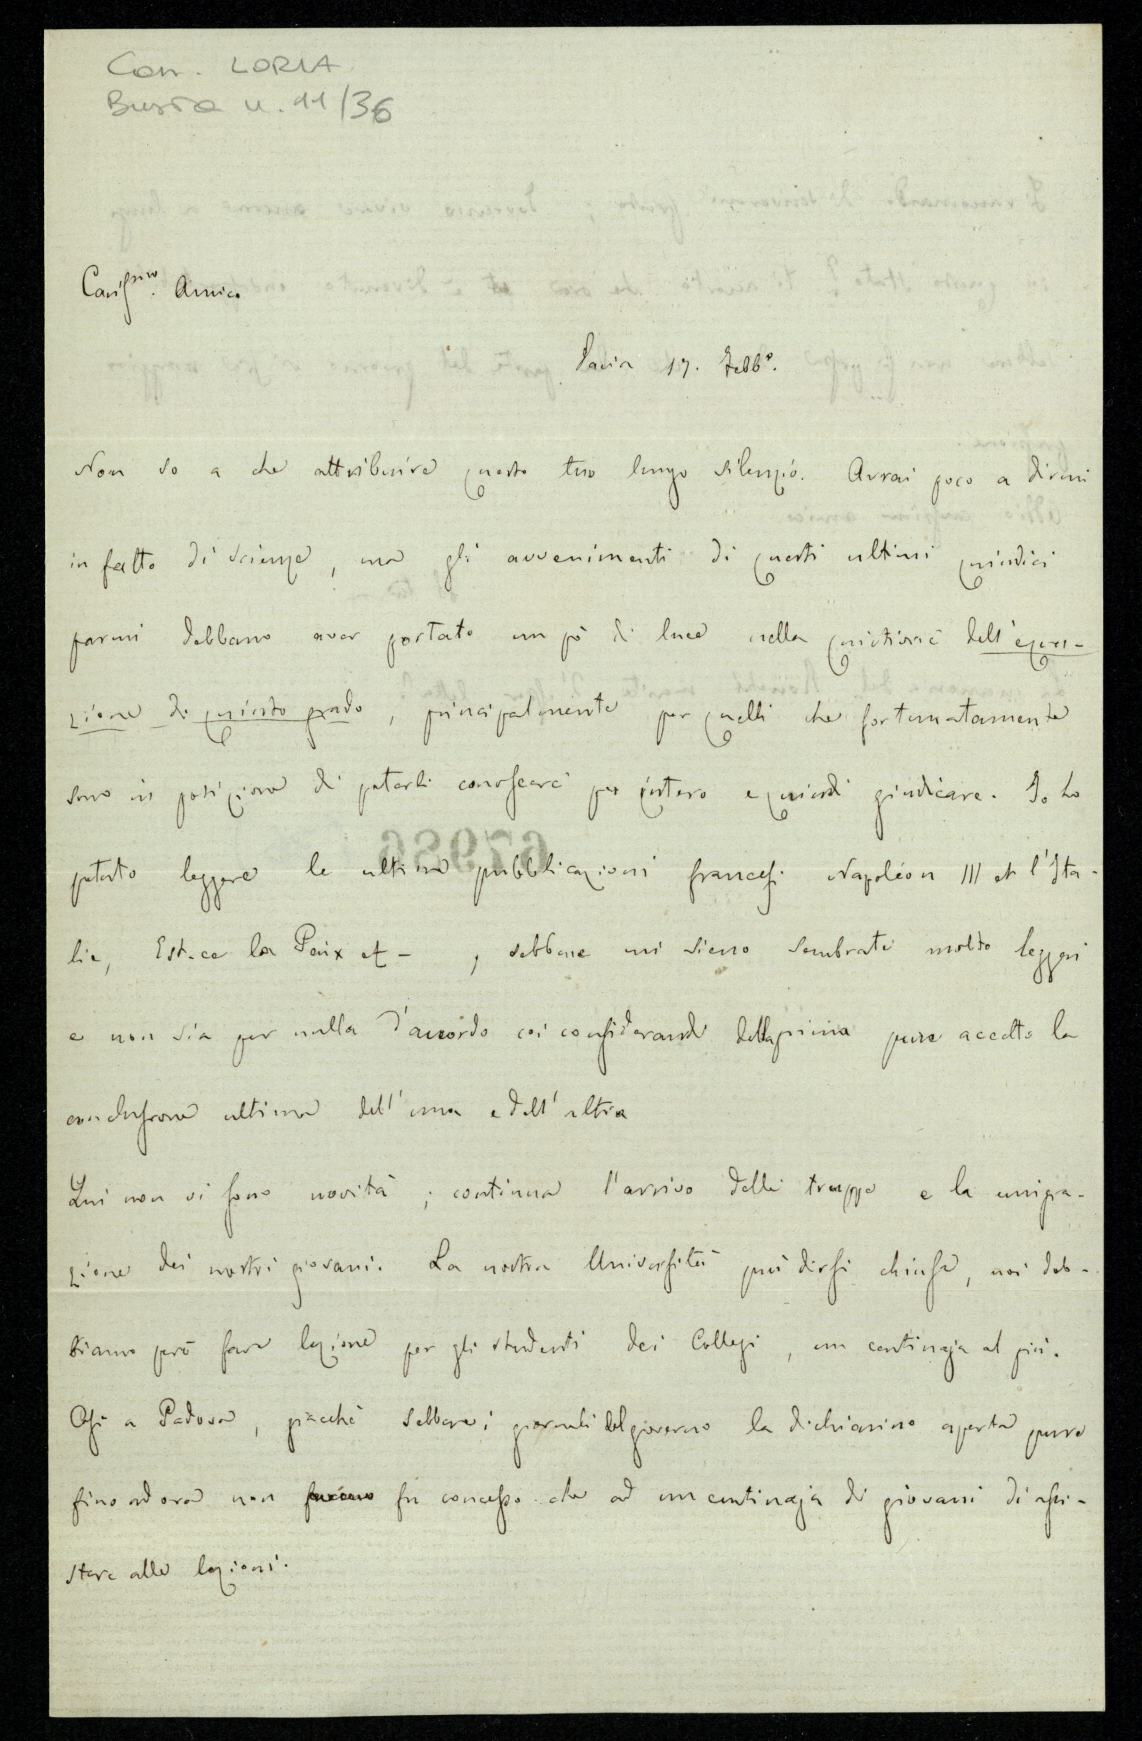 Con. LORIA
Busta n. 11/36
Cariss.mo Amico
Pavia 17. Febb.o
Non so a che attribuire questo tuo lungo silenzio. Avrai poco a dirmi
in fatto di scienze, ma gli avvenimenti di questi ultimi quindici
parmi debbano aver portato un pò di luce nella quistione dell'equa-
zione di quinto grado, principalmente per quelli che fortunatamente
sono in posizione di poterli conoscere per intero e quindi giudicare. Io ho
potuto leggere le ultime pubblicazioni francesi Napoléon III et l'Ita-
lie, Est-ce la Paix et - , sebbene mi sieno sembrate molto leggeri
e non sia per nulla d'accordo coi considerandi della prima pure accetto la
conclusione ultima dell'una e dell'altra
Qui non vi sono novità; continua l'arrivo delle truppe e la emigra-
zione dei nostri giovani. La nostra Università può dirsi chiusa, noi dob-
biamo però fare lezione per gli studenti dei Collegi, un centinaja al più.
Così a Padova, giacchè sebbene i giornali del governo la dichiarino aperta pure
fino ad ora non fu concesso che ad un centinaja di giovani di assi-
stere alle lezioni.
67986